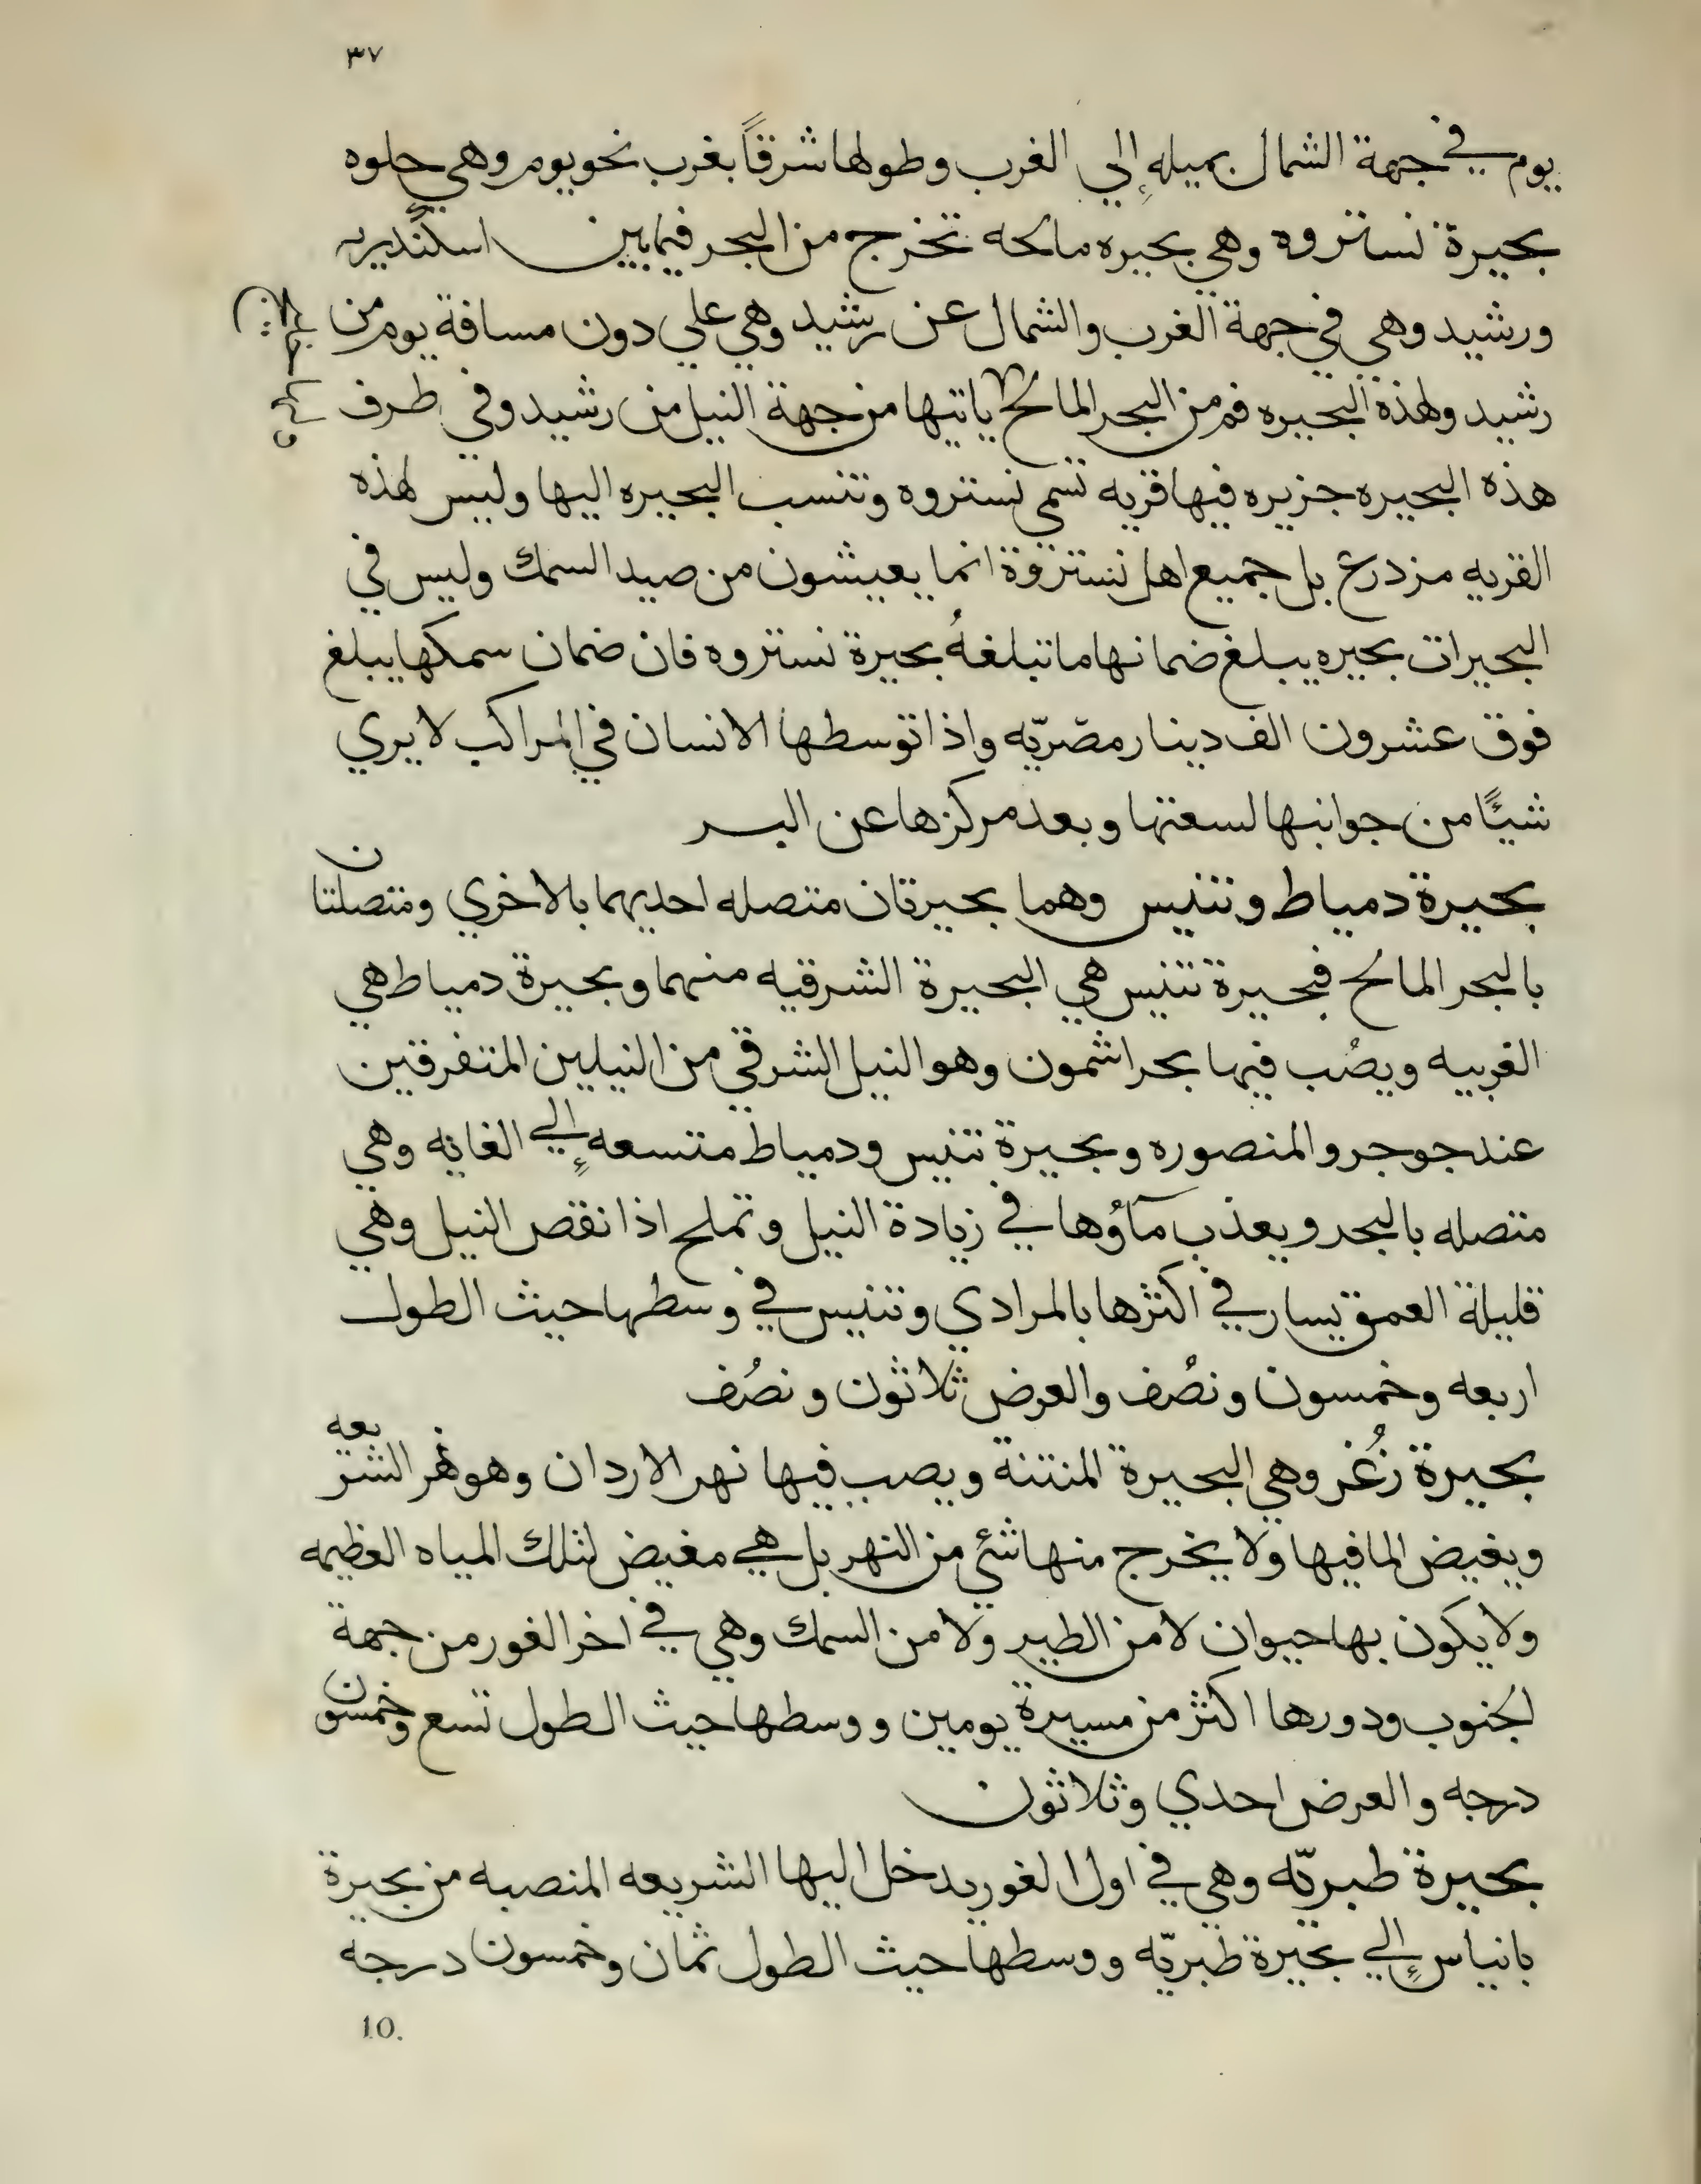 ٣٧
يوم في جهة الشمال بميله إلي الغرب وطولها شرقاً بغرب نحو يوم وهي حلوه
بحيرة نستروه وهي بحيره مالحه تخرج من البحر فيما بين اسكندريه
ورشيد وهي في جهة الغرب والشمال عن رشيد وهي علي دون مسافة يوم من
رشيد ولهذه البحيره فم من البحر المالح ياتيها من جهة النيل من رشيد وفي طرف
هذه البحيره جزيره فيها قريه تسمي نستروه وتنسب البحيره اليها وليس لهذه
القريه مزدرع بل جميع اهل نستروة انما يعيشون من صيد السمك وليس في
البحيرات بحيره يبلغ ضمانها ما تبلغهُ بحيرة نستروه فان ضمان سمكها يبلغ
فوق عشرون الف دينار مصريّه واذا توسطها الانسان في المراكب لا يري
شيئًا من جوانبها لسعتها وبعد مركزها عن البر
بحيرة دمياط وتنيس وهما بحيرتان متصله احديهما بالاخري ومتصلتان
بالبحر المالح فبحيرة تنيس هي البحيرة الشرقيه منهما وبحيرة دمياط هي
الغربيه ويصُب فيها بحر اشمون وهو النيل الشرقي من النيلين المتفرقين
عند جوجر والمنصوره وبحيرة تنيس ودمياط متسعه إلي الغايه وهي
متصله بالبحر ويعذب مآؤها في زيادة النيل وتملح اذا نقص النيل وهي
قليلة العمق يسار في اكثرها بالمرادي وتنيس في وسطها حيث الطول
اربعه وخمسون ونصُف والعرض ثلاثون ونصُف
بحيرة زُغر وهي البحيرة المنتنة ويصب فيها نهر الاردان وهو نهر الشريعه
ويغيض الما فيها ولا يخرج منها شئي من النهر بل هي مغيض لتلك المياه العظيمه
ولا يكون بها حيوان لا من الطير ولا من السمك وهي في اخر الغور من جهة
لجنوب ودورها اكثر من مسيرة يومين ووسطها حيث الطول تسع وخمسون
درجه والعرض احدي وثلاثون
بحيرة طبريّه وهي في اول الغور يدخل اليها الشريعه المنصبه من بحيرة
بانياس إلي بحيرة طبريّه ووسطها حيث الطول ثمان وخمسون درجه
10.